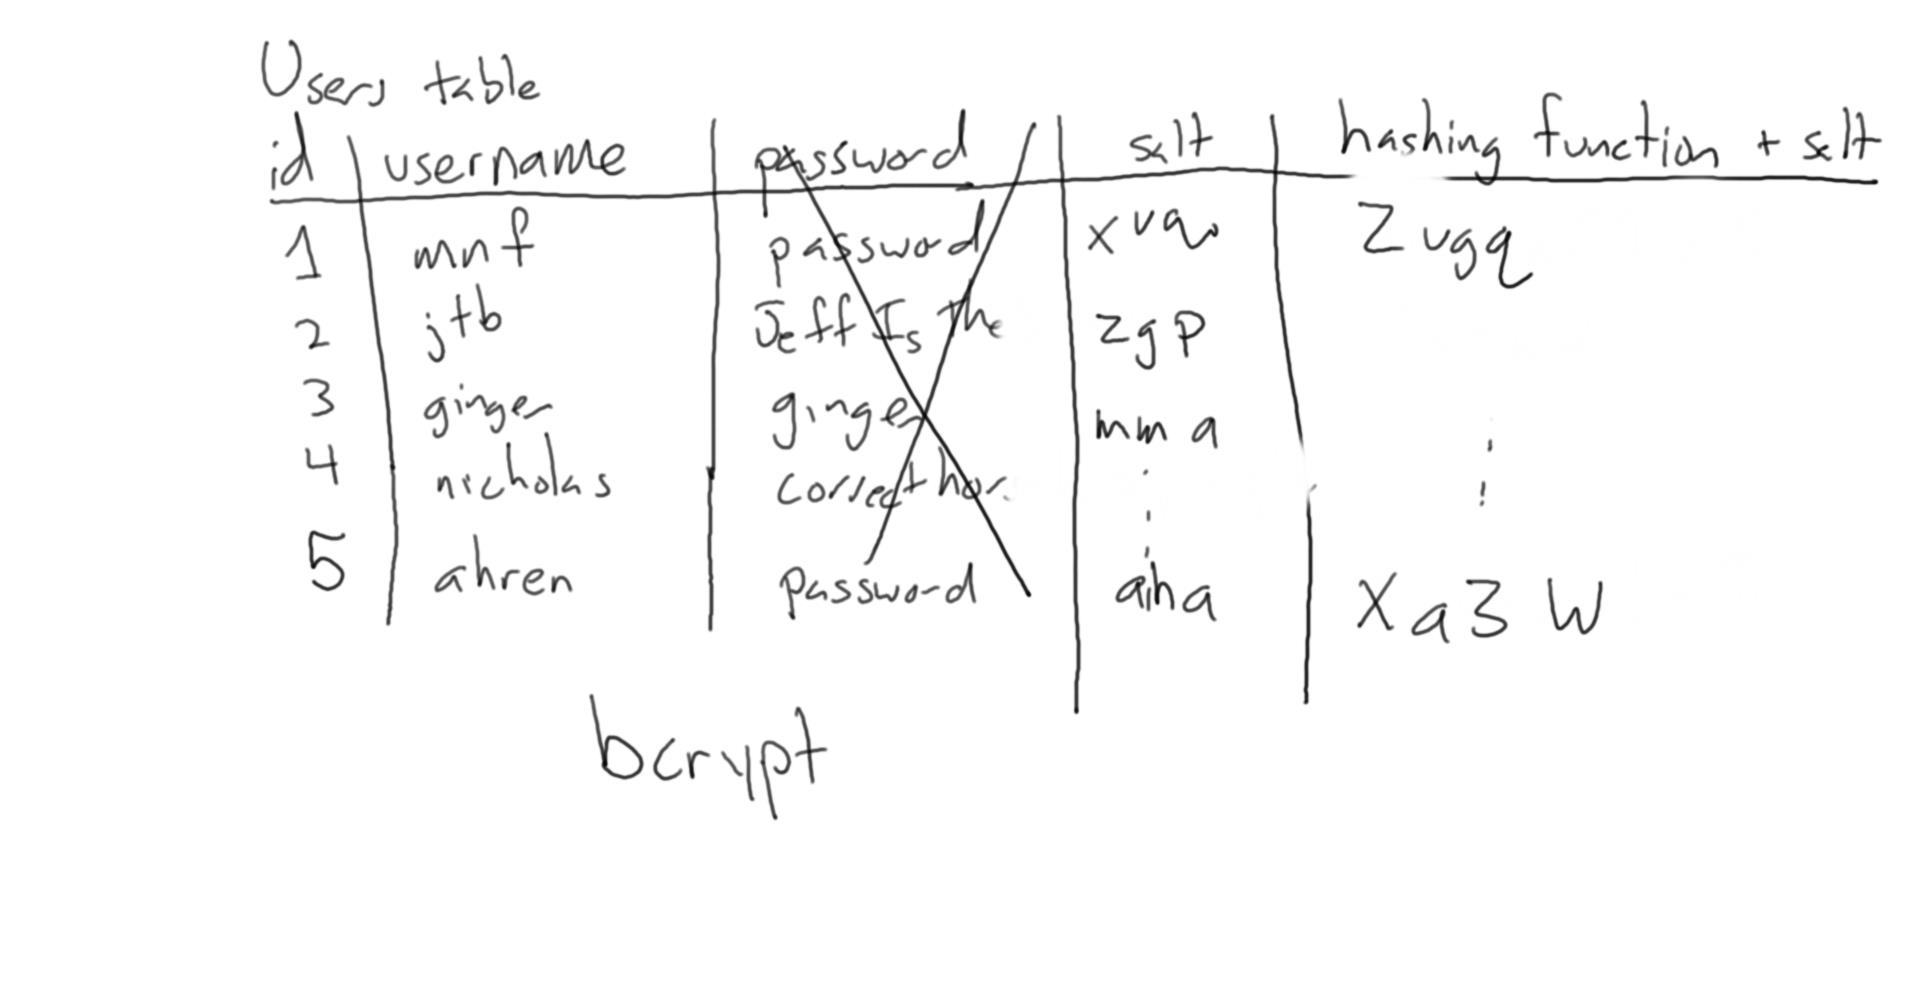 Users table
id username password salt hashing function + salt
1 mnf password xvq Zvgq
2 jtb Jeff Is The zgp
3 ginger ginger mma
4 nicholas correcthor
5 ahren password aha Xa3W
bcrypt